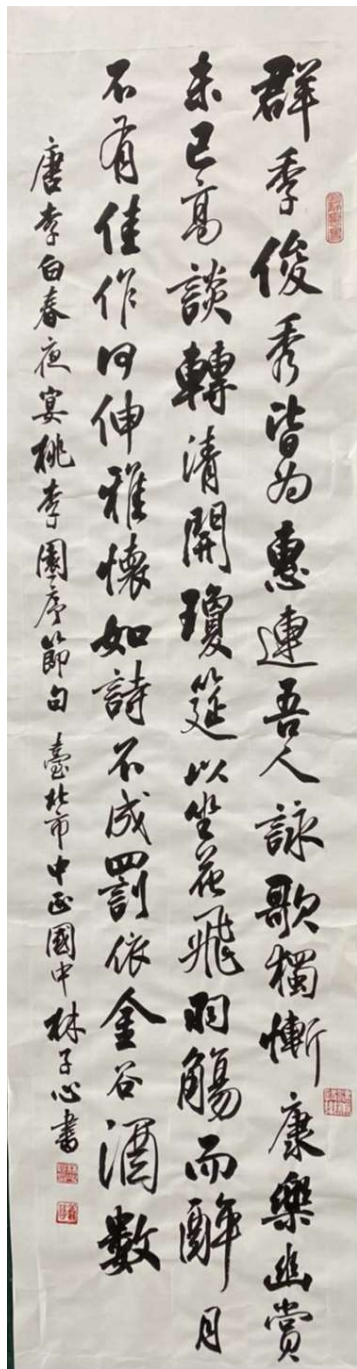 群季俊秀皆為惠連吾人詠歌獨慚康樂幽賞
未已高談轉清開瓊筵以坐花飛羽觴而醉月
不有佳作何伸雅懷如詩不成罰依金谷酒數
唐李白春夜宴桃李園序節句 臺北市中正國中林子心書